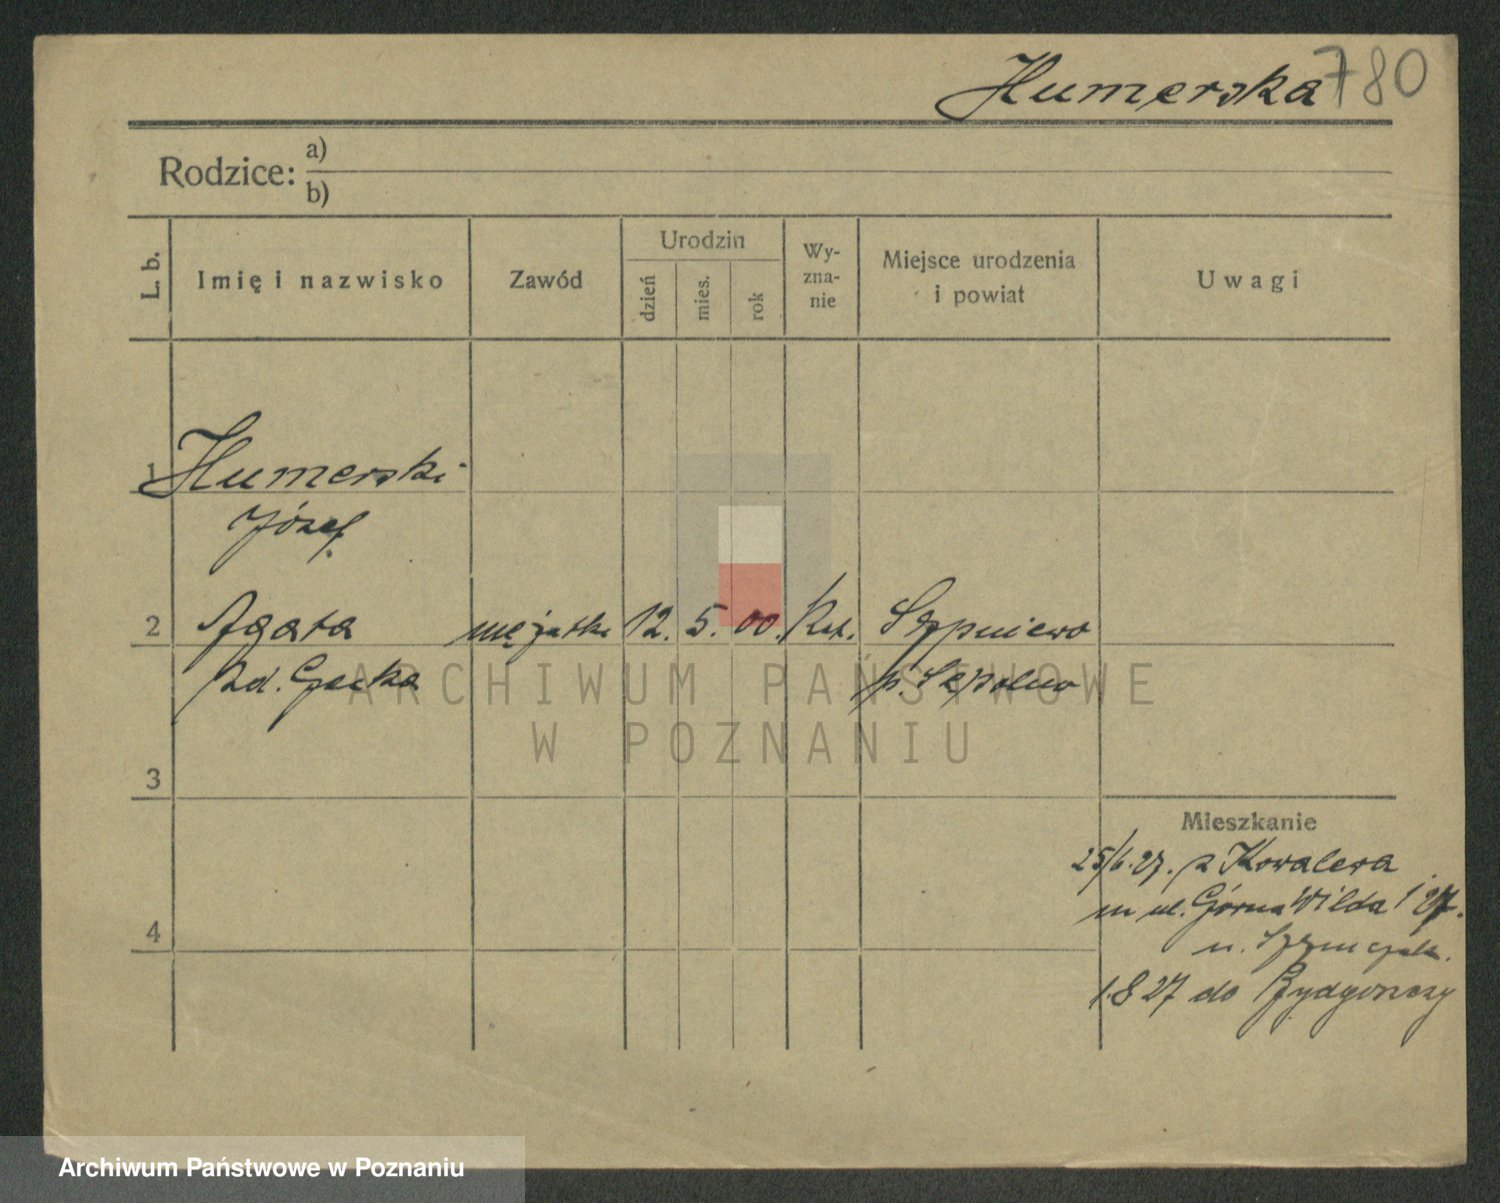 Humerska 780
Rodzice: a)
b)
L. b.
Imię i nazwisko
Zawód
Urodzin
dzień
mies.
rok
Wy-
zna-
nie
Miejsce urodzenia
i powiat
Uwagi
1 Humerski
Józef
2 Agata mężatka 12. 5. 00. Kat.
zd. Gacka p. Sępolno
3
Mieszkanie
25/6.27. z Kowalewa
ul. Górna Wilda
4
1.8 27 do Bydgoszczy
ARCHIWUM PAŃSTWOWE
W POZNANIU
Archiwum Państwowe w Poznaniu